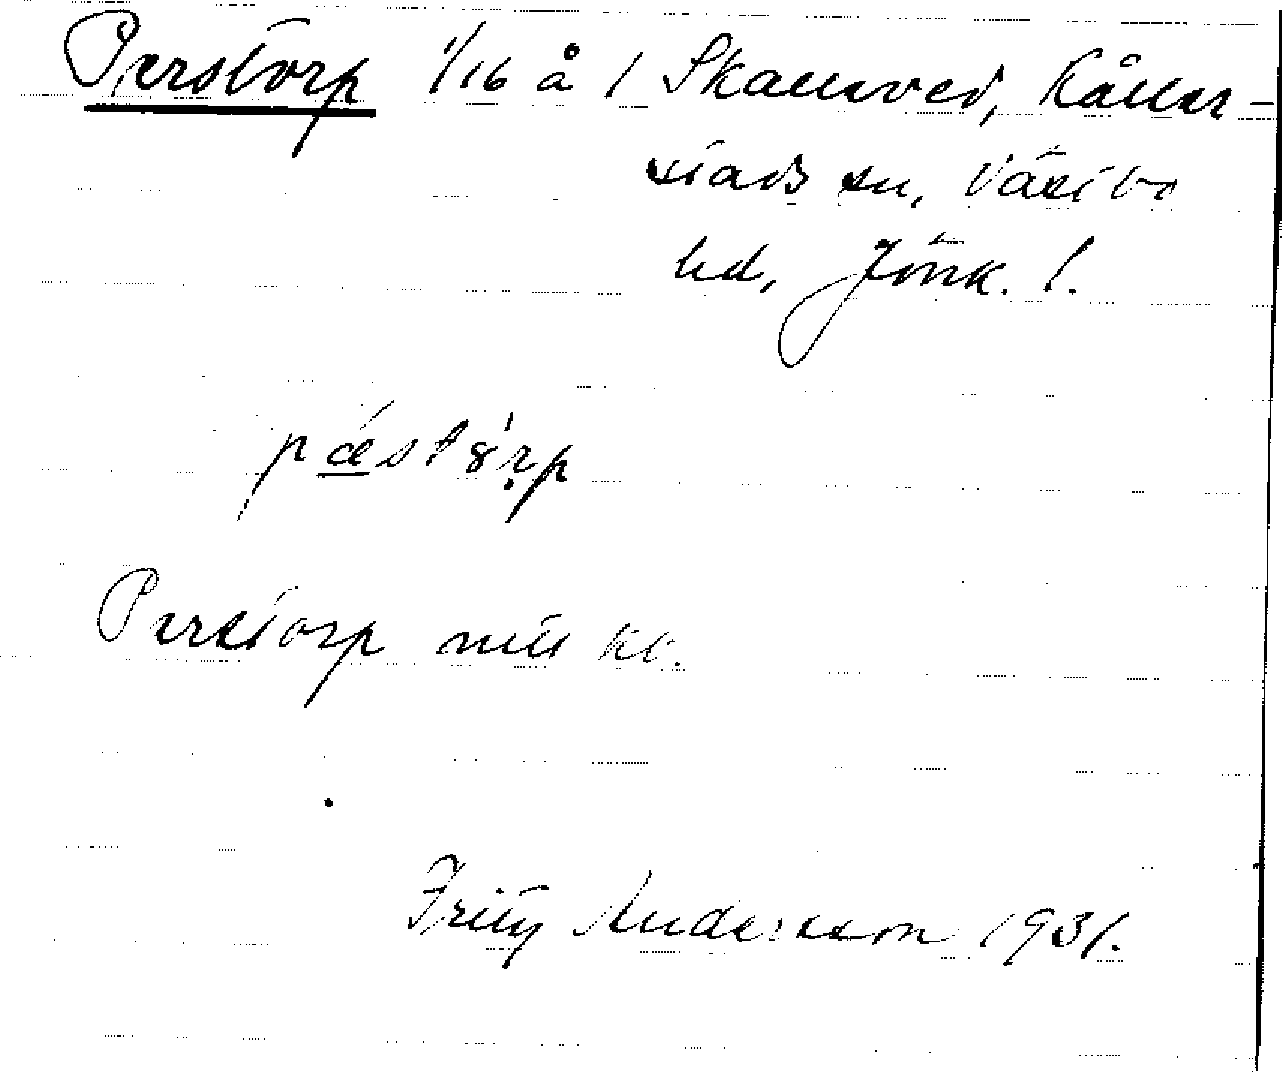 Perstorp 1/16 å 1 Skallarved, Kåller-
stads sn, Västbo
hd, Jönk. l.
Perstorp
Fritz Andersson 1931.